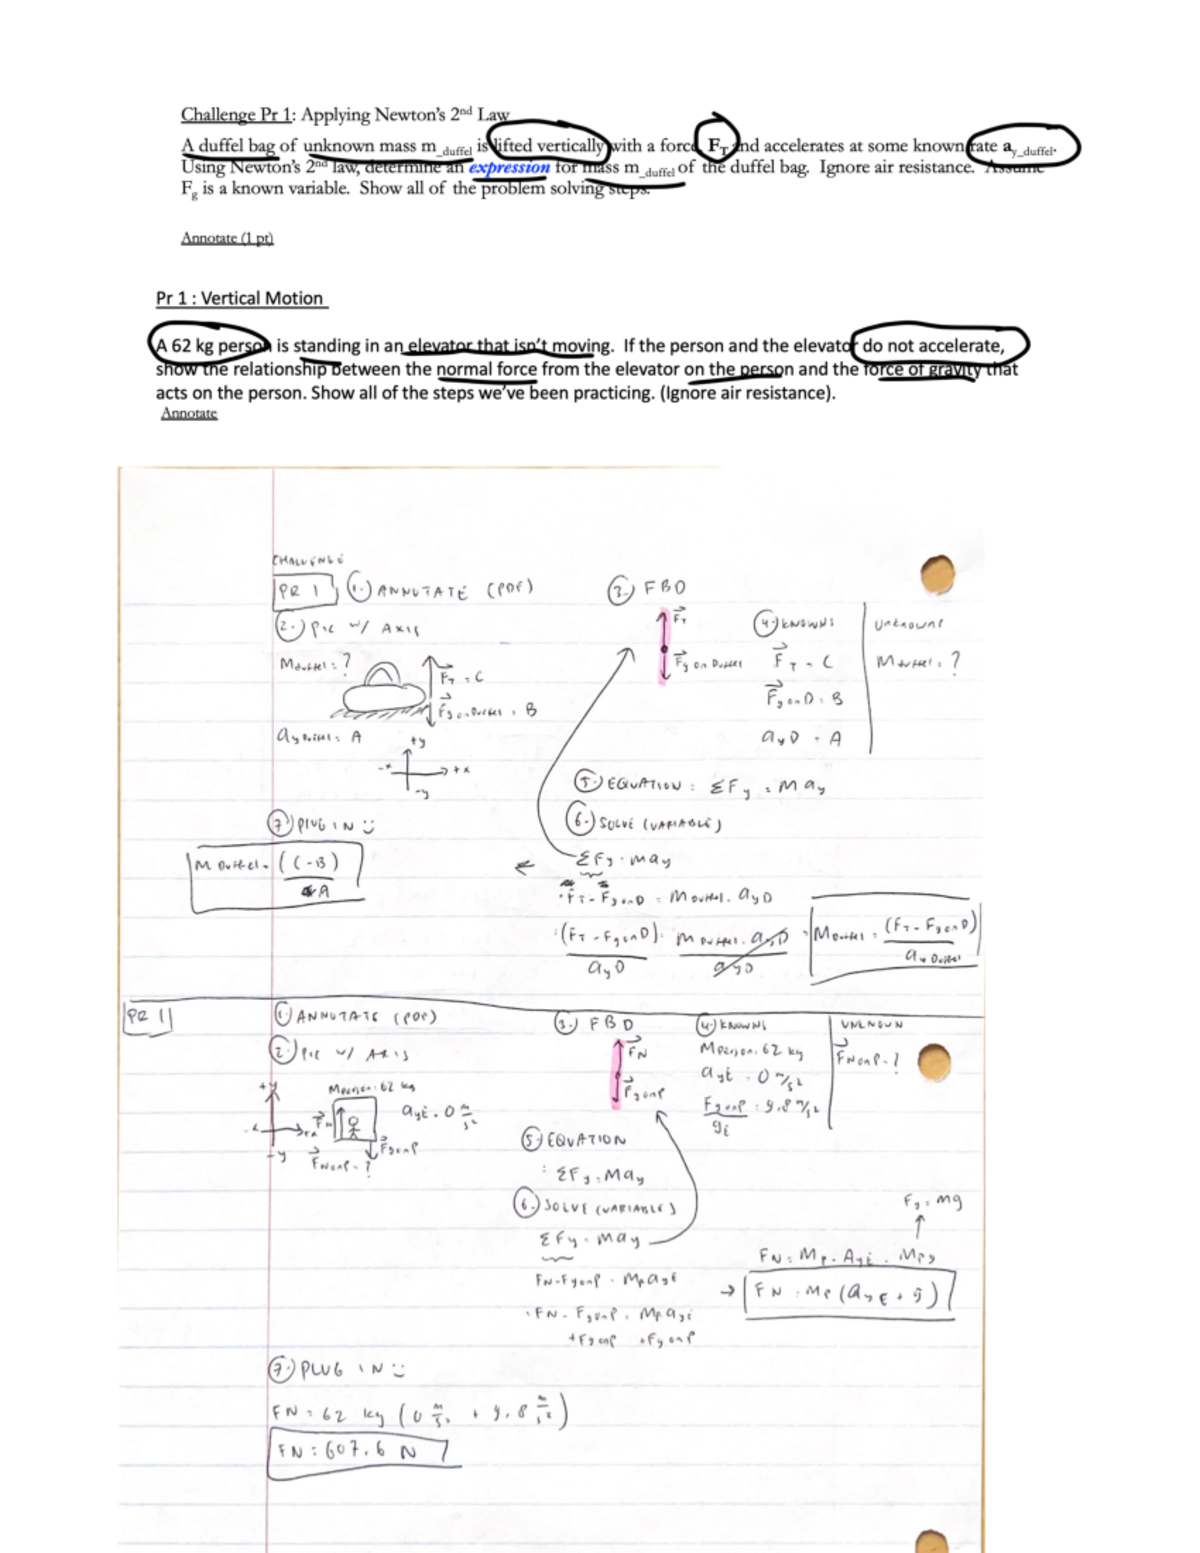 Challenge Pr 1: Applying Newton's 2nd Law
A duffel bag of unknown mass m_duffel is lifted vertically with a force F_T and accelerates at some known rate a_y_duffel.
Using Newton's 2nd law, determine an expression for mass m_duffel of the duffel bag. Ignore air resistance. Assume
F_g is a known variable. Show all of the problem solving steps.
Annotate (1 pt)
Pr 1 : Vertical Motion
A 62 kg person is standing in an elevator that isn't moving. If the person and the elevator do not accelerate,
show the relationship between the normal force from the elevator on the person and the force of gravity that
acts on the person. Show all of the steps we've been practicing. (Ignore air resistance).
Annotate
CHALLENGE
PR 1
1.) ANNOTATE (PDF)
2.) PIC W/ AXIS
Mduffel = ?
FT = C
Fg on Duffel = B
ay Duffel = A
+y
-x
+x
-y
3.) FBD
FT
Fg on Duffel
4.) KNOWNS
FT = C
Fg on D = B
ayD = A
UNKNOWNS
Mduffel = ?
5.) EQUATION : ΣFy = May
6.) SOLVE (VARIABLE)
ΣFy = may
FT - Fg on D = Mduffel . ayD
(FT - Fg on D) = Mduffel . ayD
ayD ayD
Mduffel = (FT - Fg on D)
ay Duffel
7.) PLUG IN
M Duffel = (C-B)
A
PR 1
1.) ANNOTATE (PDF)
2.) PIC W/ AXIS
+y
-x
+x
-y
Mperson = 62 kg
FN
ayE = 0 m/s²
Fg on P
FN on P = ?
3.) FBD
FN
Fg on P
4.) KNOWNS
Mperson = 62 kg
ayE = 0 m/s²
Fg on P = 9.8 m/s²
gE
UNKNOWN
FN on P = ?
5.) EQUATION
: ΣFy = May
6.) SOLVE (VARIABLE)
ΣFy = may
FN - Fg on P = MpayE
FN - Fg on P = MpayE
+Fg on P +Fg on P
Fg = mg
FN = Mp . AyE + Mpg
→ FN = MP (ayE + g)
7.) PLUG IN
FN = 62 kg (0 m/s² + 9.8 m/s²)
FN = 607.6 N